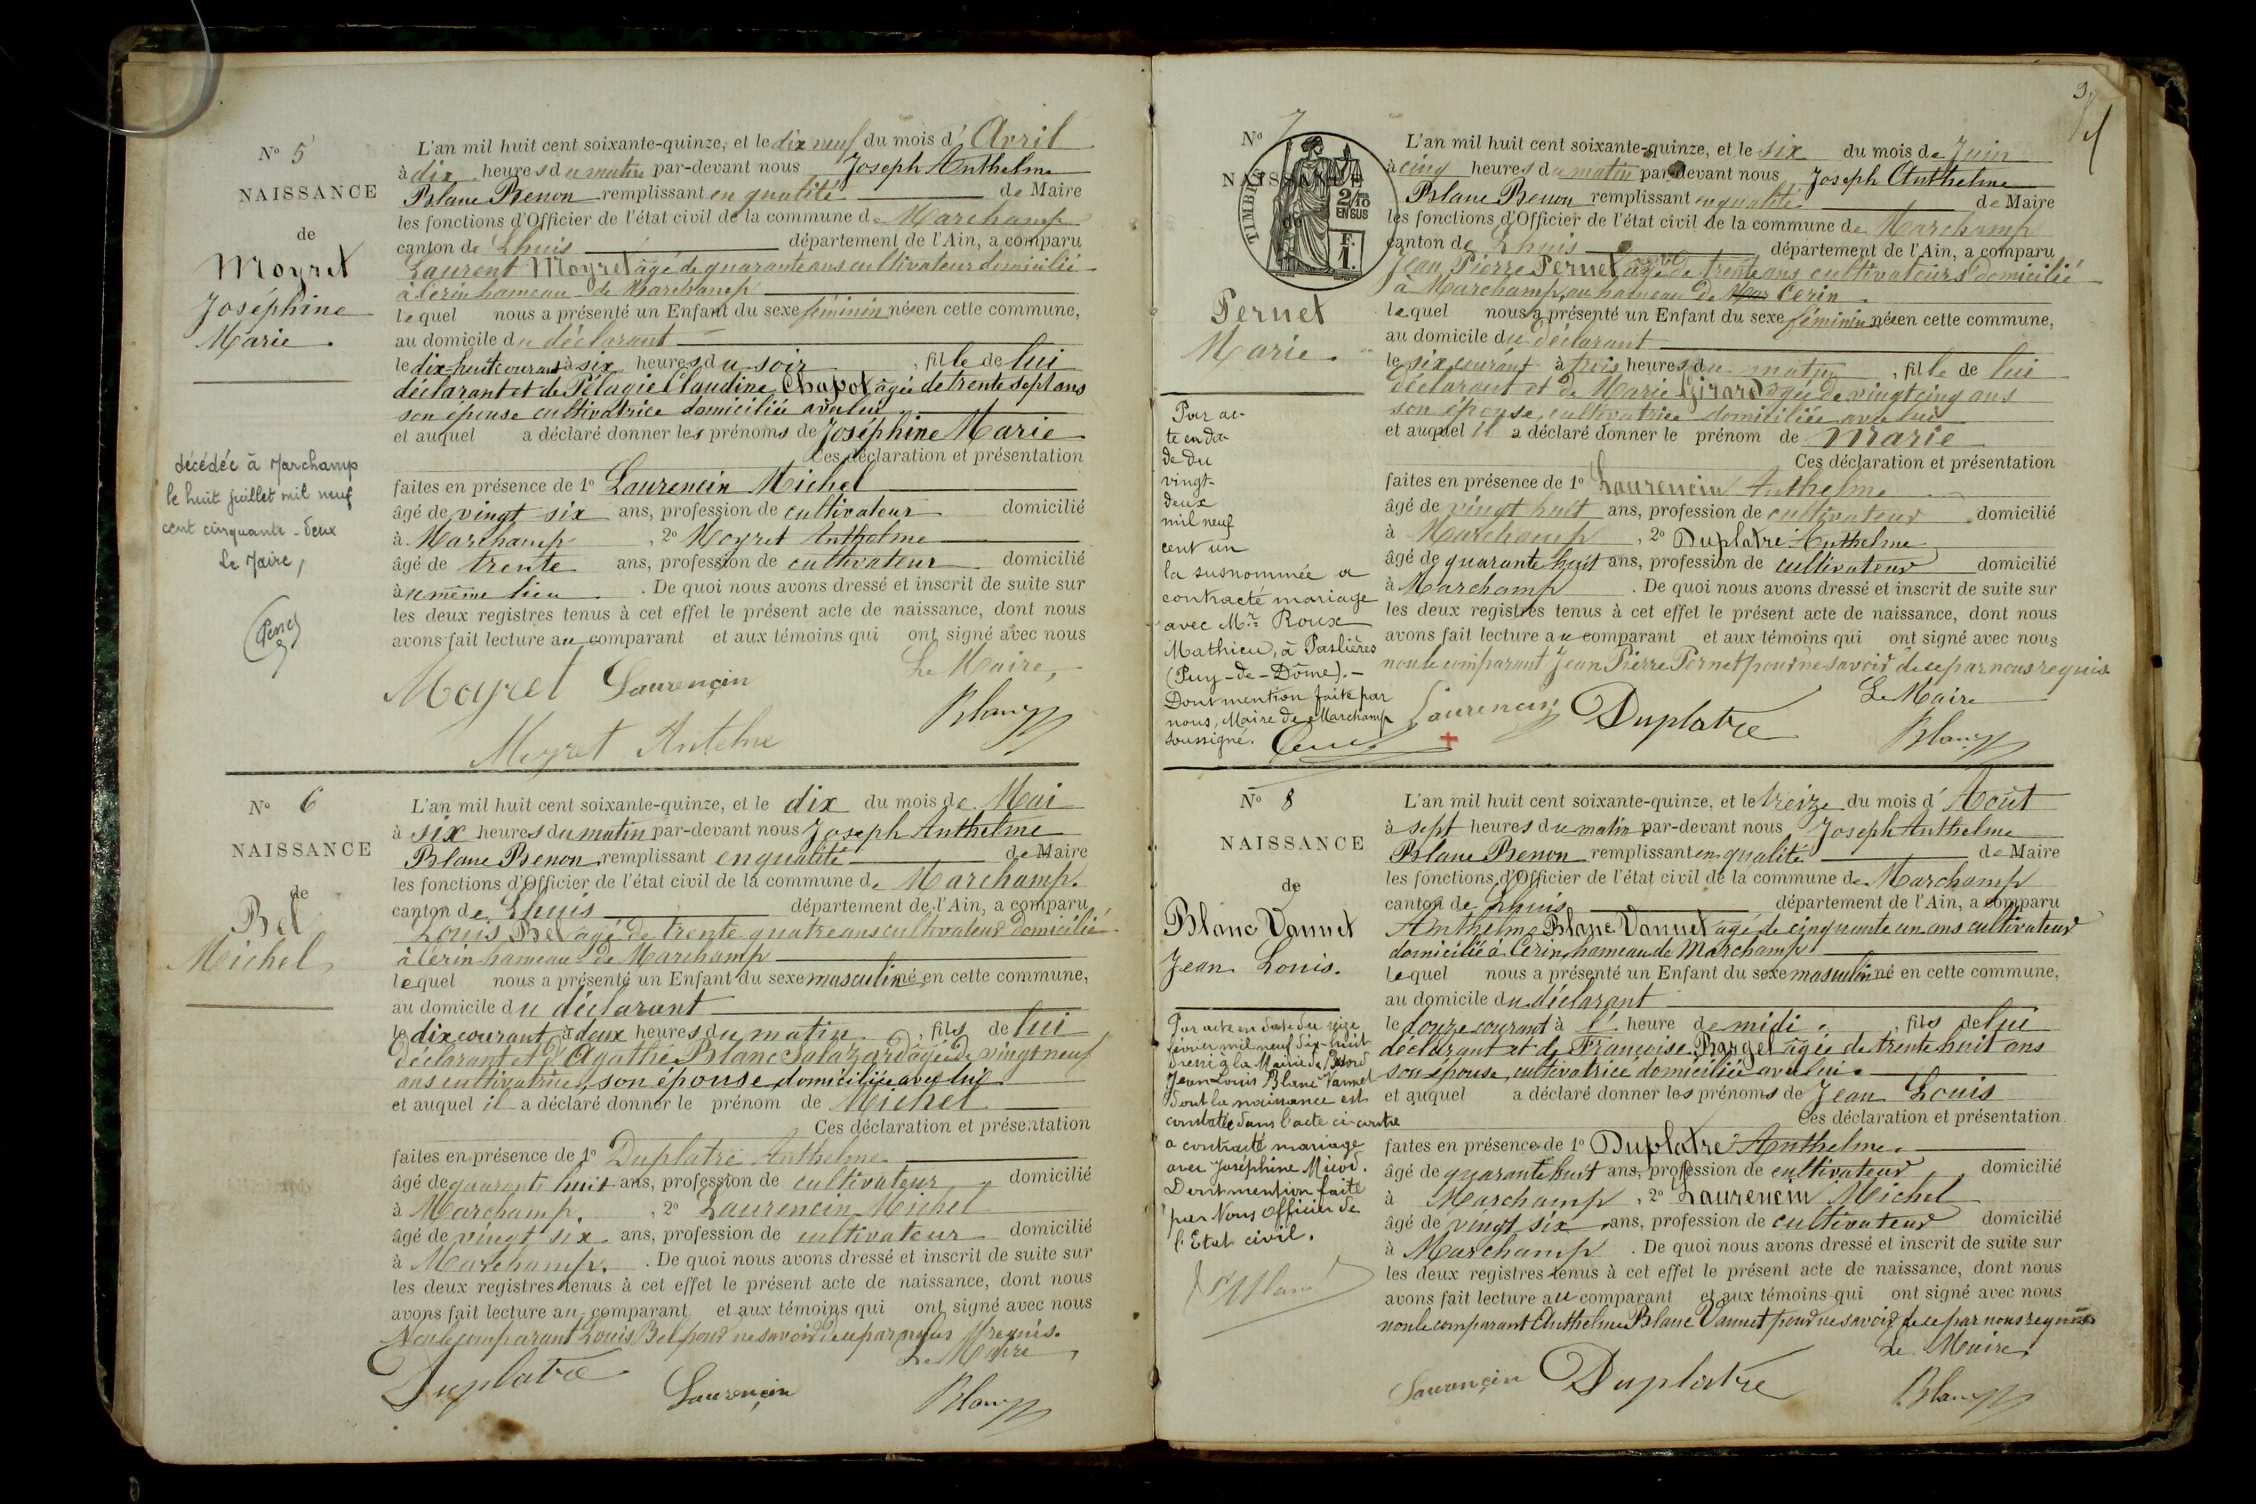 N° 5
NAISSANCE
de
Moyret
Joséphine
Marie.
décédée à Marchamp
le huit juillet mil neuf
cent cinquante-deux
Le Maire,
L'an mil huit cent soixante-quinze, et le dix neuf du mois d'Avril
à dix heures du matin par-devant nous Joseph Anthelme
Blanc Benon remplissant en qualité de Maire
les fonctions d'Officier de l'état civil de la commune de Marchamp
canton de Lhuis département de l'Ain, a comparu
Laurent Moyret âgé de quarante ans cultivateur domicilié
à Cerin hameau de Marchamp
lequel nous a présenté un Enfant du sexe féminin née en cette commune,
au domicile du déclarant
le dix-huit courant à six heures du soir, fille de lui
déclarant et de Pélagie Claudine Chapot âgée de trente sept ans
son épouse cultivatrice domiciliée avec lui
et auquel a déclaré donner les prénoms de Joséphine Marie
Ces déclaration et présentation
faites en présence de 1° Laurencin Michel
âgé de vingt six ans, profession de cultivateur domicilié
à Marchamp, 2° Moyret Anthelme
âgé de trente ans, profession de cultivateur domicilié
au même lieu. De quoi nous avons dressé et inscrit de suite sur
les deux registres tenus à cet effet le présent acte de naissance, dont nous
avons fait lecture au comparant et aux témoins qui ont signé avec nous
Le Maire,
Moyret Laurençin
Blanc
Moyret Antelme
N° 6
NAISSANCE
de
Bel
Michel
L'an mil huit cent soixante-quinze, et le dix du mois de Mai
à six heures du matin par-devant nous Joseph Anthelme
Blanc Benon remplissant en qualité de Maire
les fonctions d'Officier de l'état civil de la commune de Marchamp.
canton de Lhuis département de l'Ain, a comparu
Louis Bel âgé de trente quatre ans cultivateur domicilié
à Cerin hameau de Marchamp
lequel nous a présenté un Enfant du sexe masculin né en cette commune,
au domicile du déclarant
le dix courant à deux heures du matin, fils de lui
déclarant et d'Agathe Blanc Salazard âgée de vingt neuf
ans cultivatrice, son épouse domiciliée avec lui
et auquel il a déclaré donner le prénom de Michel
Ces déclaration et présentation
faites en présence de 1° Duplatre Anthelme
âgé de quarante huit ans, profession de cultivateur domicilié
à Marchamp., 2° Laurencin Michel
âgé de vingt six ans, profession de cultivateur domicilié
à Marchamp. De quoi nous avons dressé et inscrit de suite sur
les deux registres tenus à cet effet le présent acte de naissance, dont nous
avons fait lecture au comparant et aux témoins qui ont signé avec nous
Non le comparant Louis Bel pour ne savoir de ce par nous requis.
Le Maire,
Duplatre Laurençin Blanc
N° 7
NAISSANCE
de
TIMBRE
2/10
EN SUS
F.
1.
Pernet
Marie.
Par ac-
te en da-
te du
vingt-
deux
mil neuf
cent un
la susnommée a
contracté mariage
avec Mr Roux
Mathieu, à Paslières
(Puy-de-Dôme).-
Dont mention faite par
nous, Maire de Marchamp
soussigné.
L'an mil huit cent soixante-quinze, et le six du mois de Juin
à cinq heures du matin par-devant nous Joseph Anthelme
Blanc Benon remplissant en qualité de Maire
les fonctions d'Officier de l'état civil de la commune de Marchamp
canton de Lhuis département de l'Ain, a comparu
Jean Pierre Pernet âgé de trente ans cultivateur domicilié
à Marchamp, au hameau de Cerin
lequel nous a présenté un Enfant du sexe féminin née en cette commune,
au domicile du déclarant
le six courant à trois heures du matin, fille de lui
déclarant et de Marie Girard âgée de vingt cinq ans
son épouse, cultivatrice domiciliée avec lui
et auquel il a déclaré donner le prénom de Marie
Ces déclaration et présentation
faites en présence de 1° Laurencin Anthelme
âgé de vingt huit ans, profession de cultivateur domicilié
à Marchamp, 2° Duplatre Anthelme
âgé de quarante huit ans, profession de cultivateur domicilié
à Marchamp. De quoi nous avons dressé et inscrit de suite sur
les deux registres tenus à cet effet le présent acte de naissance, dont nous
avons fait lecture au comparant et aux témoins qui ont signé avec nous
non le comparant Jean Pierre Pernet pour ne savoir de ce par nous requis
Le Maire
Laurencin Duplatre Blanc
N° 8
NAISSANCE
de
Blanc Vannet
Jean Louis.
Par acte en date du seize
février mil neuf dix-huit
dressé à la Mairie de
Jean Louis Blanc Vannet
dont la naissance est
constatée dans l'acte ci-contre
a contracté mariage
avec Joséphine
Dont mention faite
par Nous Officier de
l'Etat civil.
L'an mil huit cent soixante-quinze, et le treize du mois d'Août
à sept heures du matin par-devant nous Joseph Anthelme
Blanc Benon remplissant en qualité de Maire
les fonctions d'Officier de l'état civil de la commune de Marchamp
canton de Lhuis département de l'Ain, a comparu
Anthelme Blanc Vannet âgé de cinquante un ans cultivateur
domicilié à Cerin, hameau de Marchamp
lequel nous a présenté un Enfant du sexe masculin né en cette commune,
au domicile du déclarant
le douze courant à l' heure de midi, fils de lui
déclarant et de Françoise Barget âgée de trente huit ans
son épouse, cultivatrice domiciliée avec lui
et auquel a déclaré donner les prénoms de Jean Louis
Ces déclaration et présentation
faites en présence de 1° Duplatre Anthelme.
âgé de quarante huit ans, profession de cultivateur domicilié
à Marchamp, 2° Laurencin Michel
âgé de vingt six ans, profession de cultivateur domicilié
à Marchamp. De quoi nous avons dressé et inscrit de suite sur
les deux registres tenus à cet effet le présent acte de naissance, dont nous
avons fait lecture au comparant et aux témoins qui ont signé avec nous
non le comparant Anthelme Blanc Vannet pour ne savoir de ce par nous requis
Le Maire,
Laurençin Duplatre Blanc